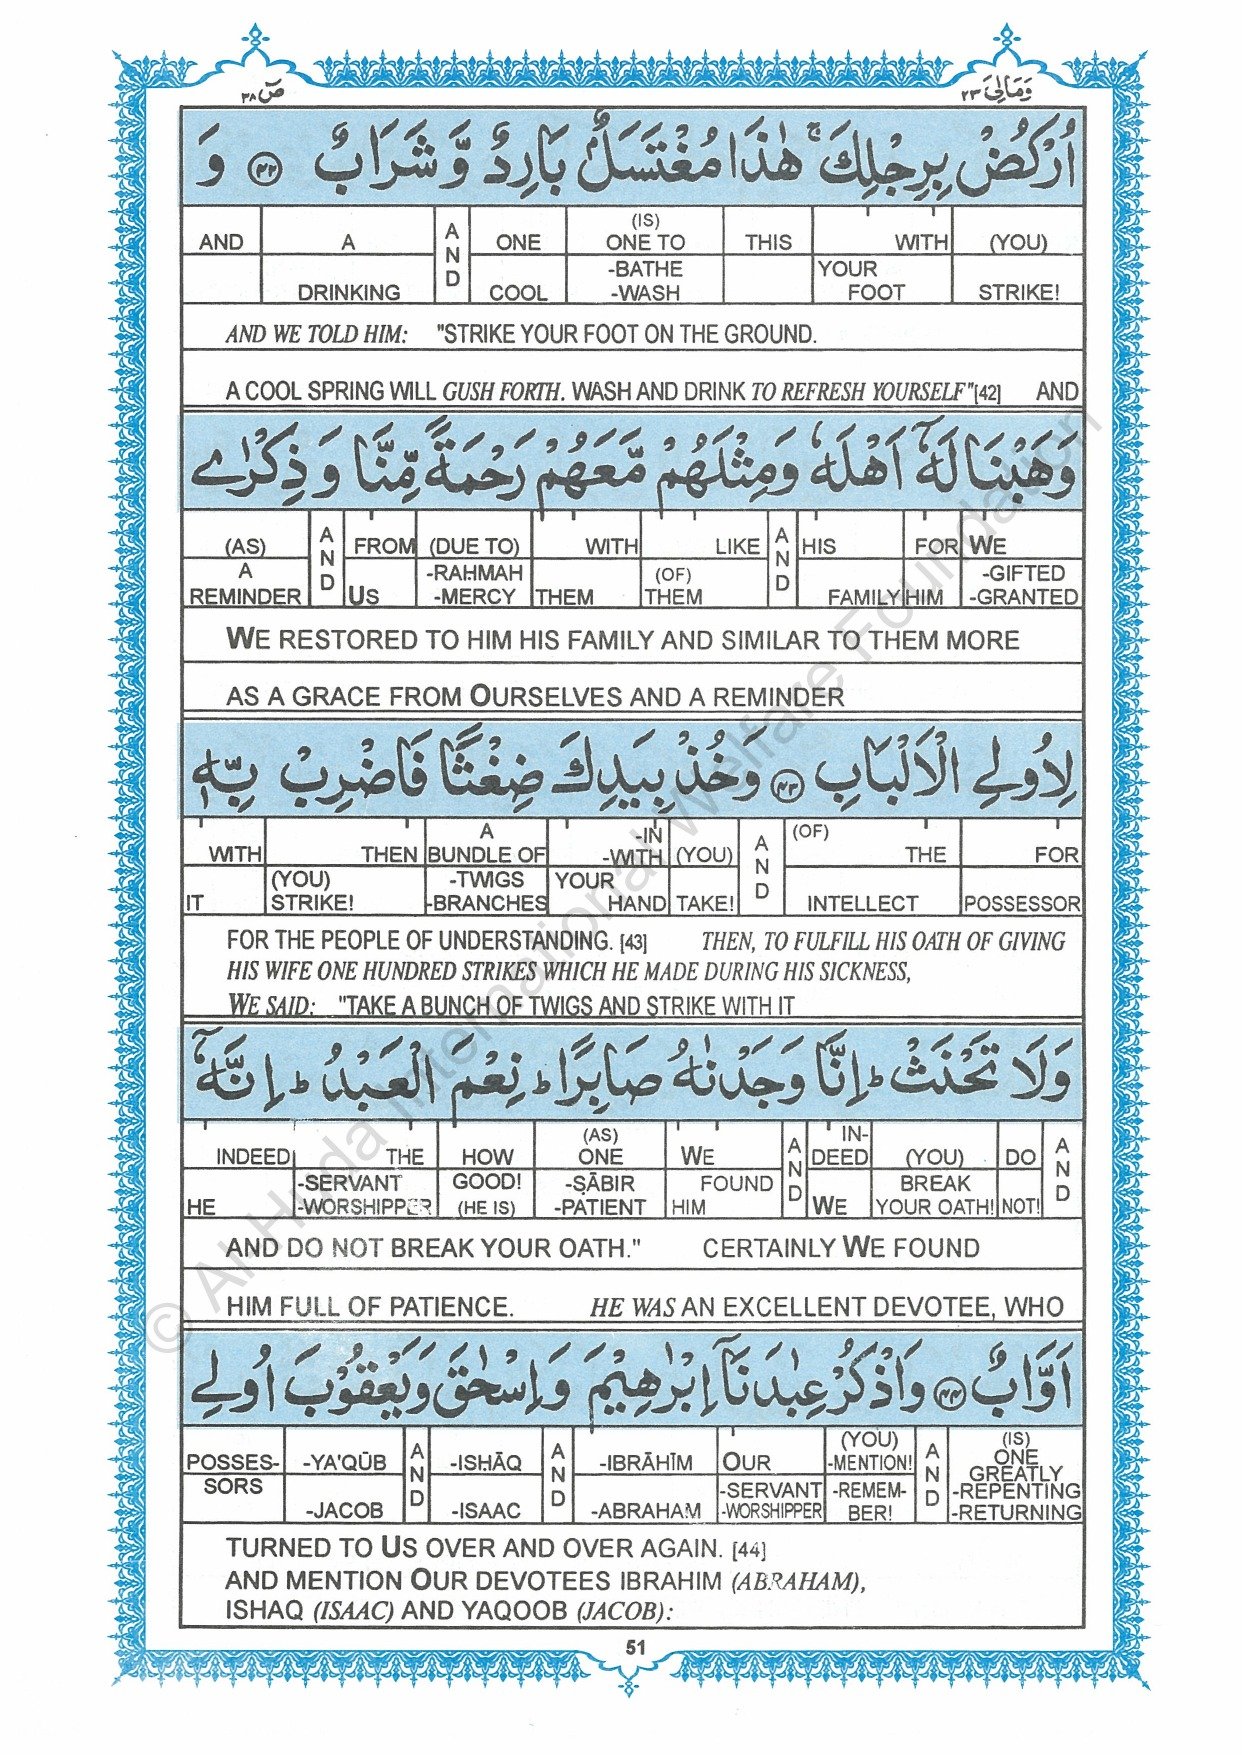 صٓ ٣٨ وَمَالِيَ ٢٣
اُرْكُضْ بِرِجْلِكَ ۚ هٰذَا مُغْتَسَلٌۢ بَارِدٌ وَّ شَرَابٌ ﴿٤٢﴾ وَ
AND A AND ONE (IS) ONE TO THIS WITH (YOU)
DRINKING COOL -BATHE -WASH YOUR FOOT STRIKE!
AND WE TOLD HIM: "STRIKE YOUR FOOT ON THE GROUND.
A COOL SPRING WILL GUSH FORTH. WASH AND DRINK TO REFRESH YOURSELF"[42] AND
وَهَبْنَا لَهٗٓ اَهْلَهٗ وَمِثْلَهُمْ مَّعَهُمْ رَحْمَةً مِّنَّا وَ ذِكْرٰى
(AS) AND FROM (DUE TO) WITH LIKE AND HIS FOR WE
A REMINDER US -RAHMAH -MERCY THEM (OF) THEM FAMILY HIM -GIFTED -GRANTED
WE RESTORED TO HIM HIS FAMILY AND SIMILAR TO THEM MORE
AS A GRACE FROM OURSELVES AND A REMINDER
لِاُولِي الْاَلْبَابِ ﴿٤٣﴾ وَخُذْ بِيَدِكَ ضِغْثًا فَاضْرِبْ بِّهٖ
WITH THEN A BUNDLE OF -IN -WITH (YOU) AND (OF) THE FOR
IT (YOU) STRIKE! -TWIGS -BRANCHES YOUR HAND TAKE! INTELLECT POSSESSOR
FOR THE PEOPLE OF UNDERSTANDING. [43] THEN, TO FULFILL HIS OATH OF GIVING
HIS WIFE ONE HUNDRED STRIKES WHICH HE MADE DURING HIS SICKNESS,
WE SAID: "TAKE A BUNCH OF TWIGS AND STRIKE WITH IT
وَلَا تَحْنَثْ ؕ اِنَّا وَجَدْنٰهُ صَابِرًا ؕ نِعْمَ الْعَبْدُ ؕ اِنَّهٗٓ
INDEED THE HOW (AS) ONE WE AND IN-DEED (YOU) DO AND
HE -SERVANT -WORSHIPPER GOOD! (HE IS) -ṢĀBIR -PATIENT FOUND HIM WE BREAK YOUR OATH! NOT!
AND DO NOT BREAK YOUR OATH." CERTAINLY WE FOUND
HIM FULL OF PATIENCE. HE WAS AN EXCELLENT DEVOTEE, WHO
اَوَّابٌ ﴿٤٤﴾ وَاذْكُرْ عِبٰدَنَآ اِبْرٰهِيْمَ وَاِسْحٰقَ وَيَعْقُوْبَ اُولِي
POSSES- -YA'QŪB AND -ISḤĀQ AND -IBRĀHĪM OUR (YOU) -MENTION! AND (IS) ONE GREATLY
SORS -JACOB -ISAAC -ABRAHAM -SERVANT -WORSHIPPER -REMEM-BER! -REPENTING -RETURNING
TURNED TO US OVER AND OVER AGAIN. [44]
AND MENTION OUR DEVOTEES IBRAHIM (ABRAHAM),
ISHAQ (ISAAC) AND YAQOOB (JACOB):
51
© Al Huda International Welfare Foundation